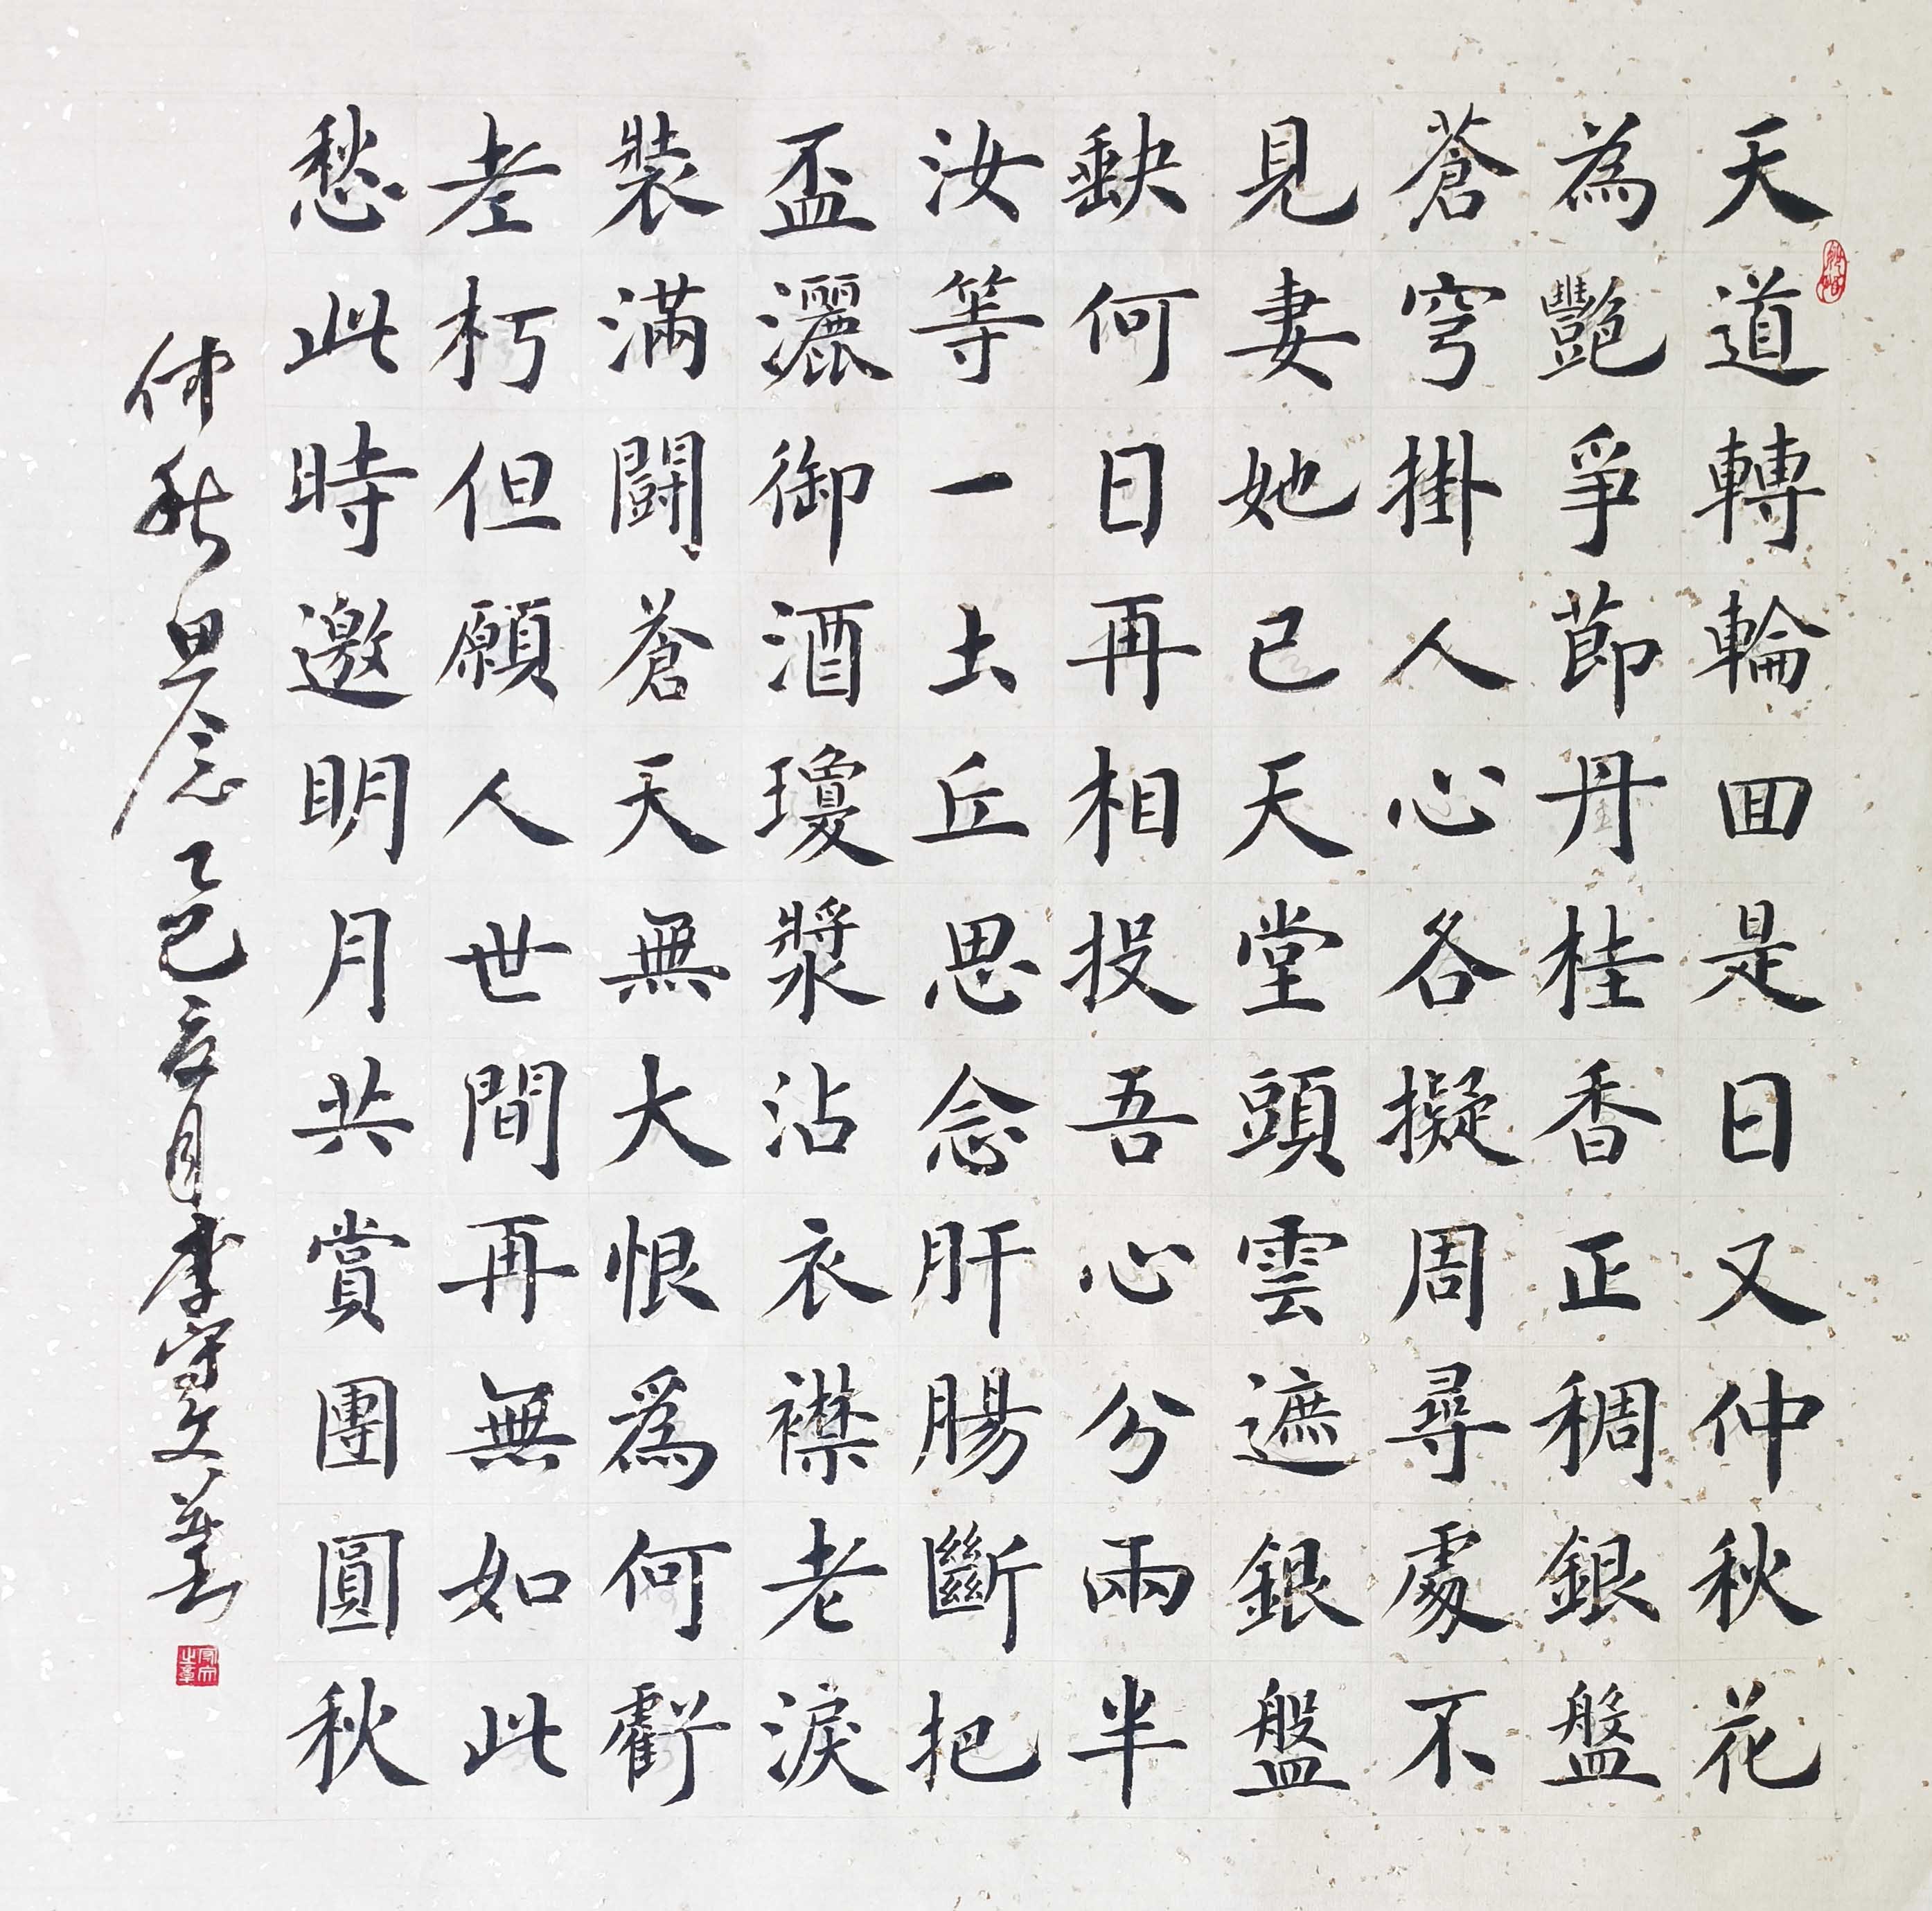 天道轉輪回是日又仲秋花
為艷爭節丹桂香正稠銀盤
蒼穹掛人心各擬周尋處不
見妻她已天堂頭雲遮銀盤
缺何日再相投吾心分兩半
汝等一土丘思念肝腸斷把
盃灑御酒瓊漿沾衣襟老淚
裝滿鬬蒼天無大恨為何虧
老朽但願人世間再無如此
愁此時邀明月共賞團圓秋
仲秋思念乙巳亥月李守文書
守文之章